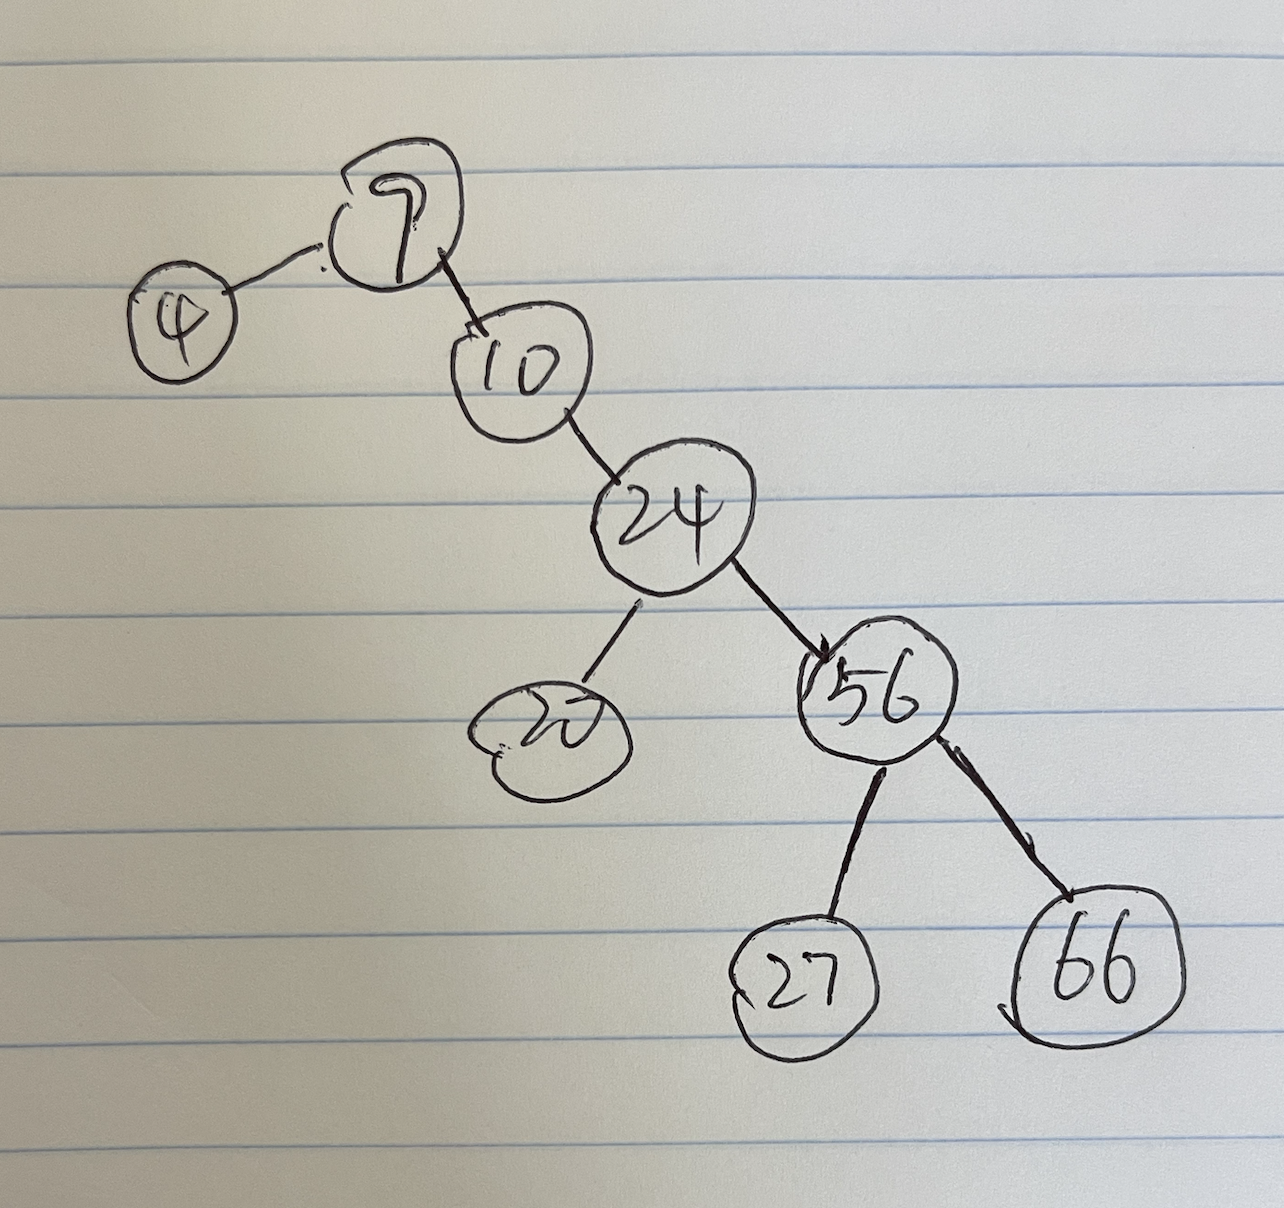 4
10
24
20
56
27
66